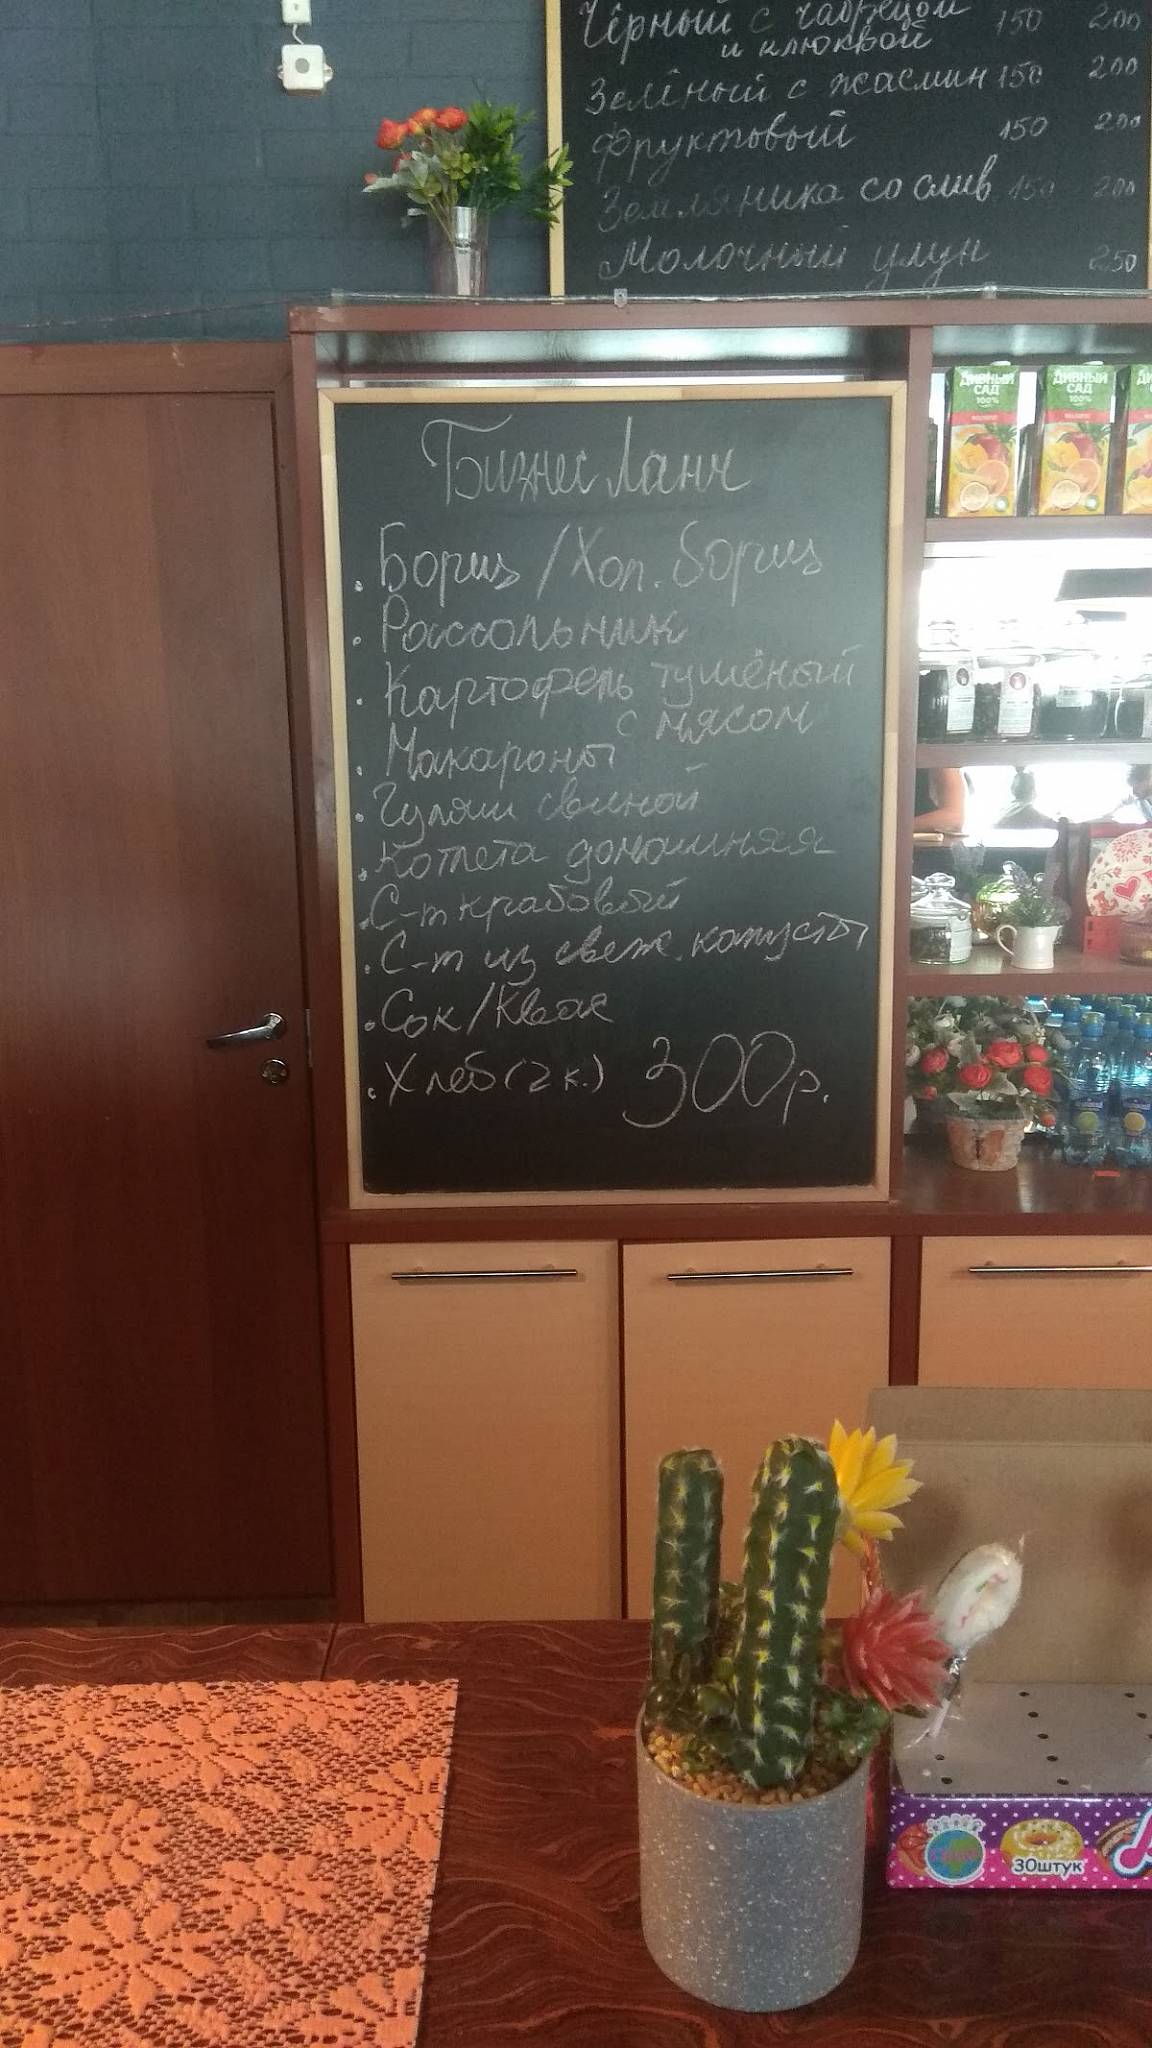 Чёрный с чабрецом 150 200
и клюквой
Зелёный с жасмин 150 200
Фруктовый 150 200
Земляника со слив 150 200
Молочный улун 250
ДИВНЫЙ САД 100%
ДИВНЫЙ САД 100%
Бизнес Ланч
. Борщ / Хол. борщ
. Рассольник
. Картофель тушёный
с мясом
. Макароны
. Гуляш свиной
. Котлета домашняя
. С-т крабовый
. С-т из свеж. капусты
. Сок/Квас
. Хлеб (2 к.) 300р.
30ШТУК